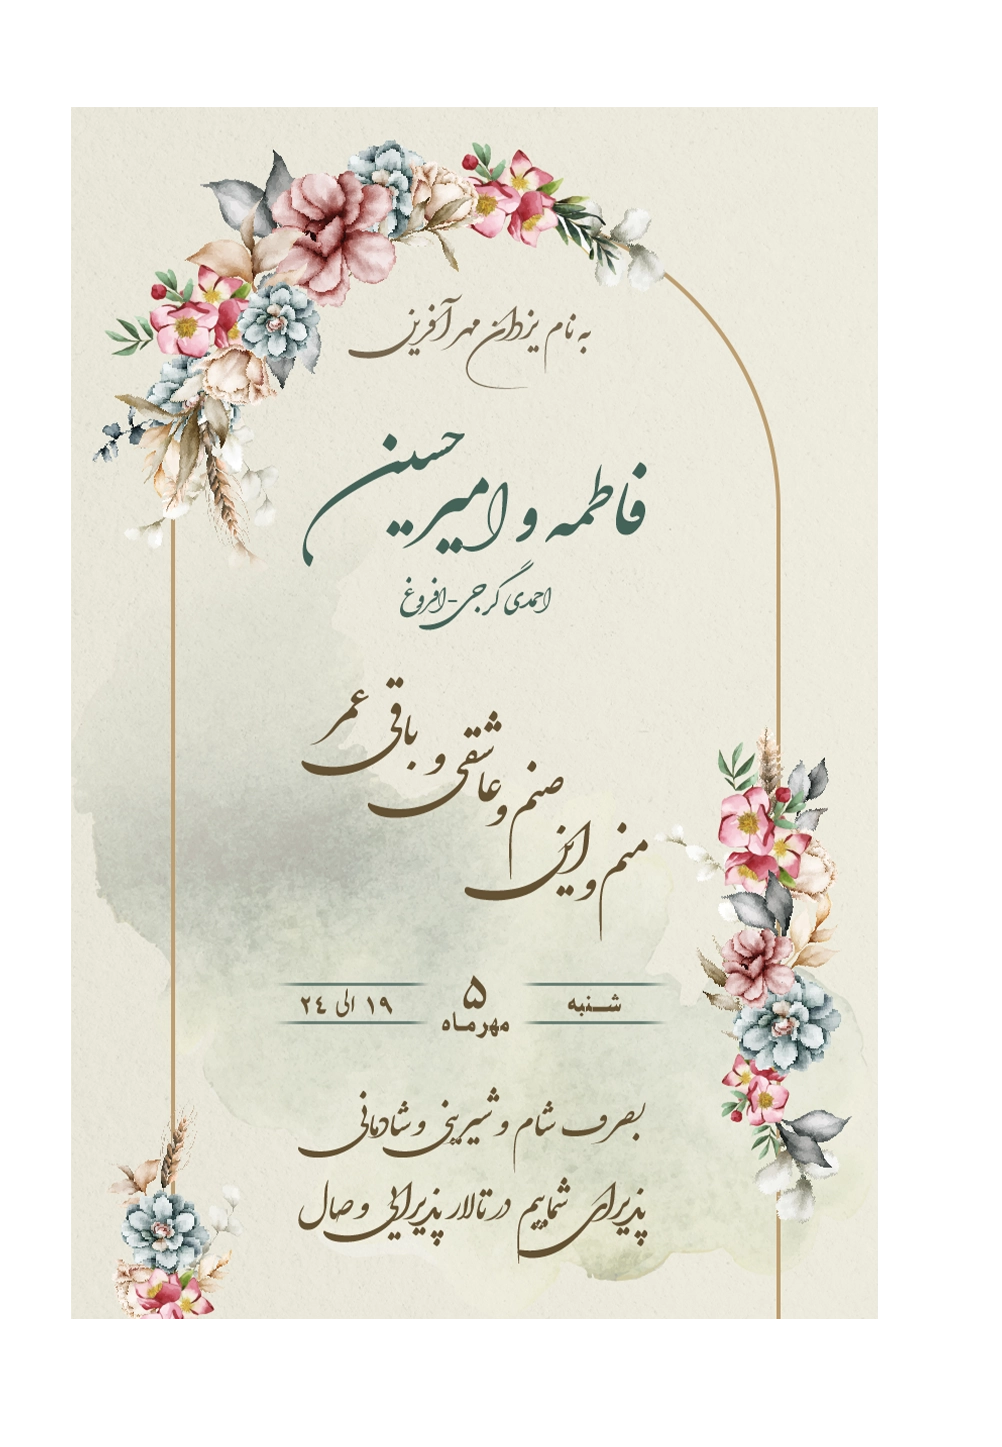 به نام یزدان مهر آفرین
فاطمه و امیرحسین
احمدی گرجی-افروغ
منم و این صنم و عاشقی و باقی عمر
شنبه
۵
مهرماه
۱۹ الی ۲۴
بصرف شام و شیرینی و شادمانی
پذیرای شماییم در تالار پذیرایی وصال